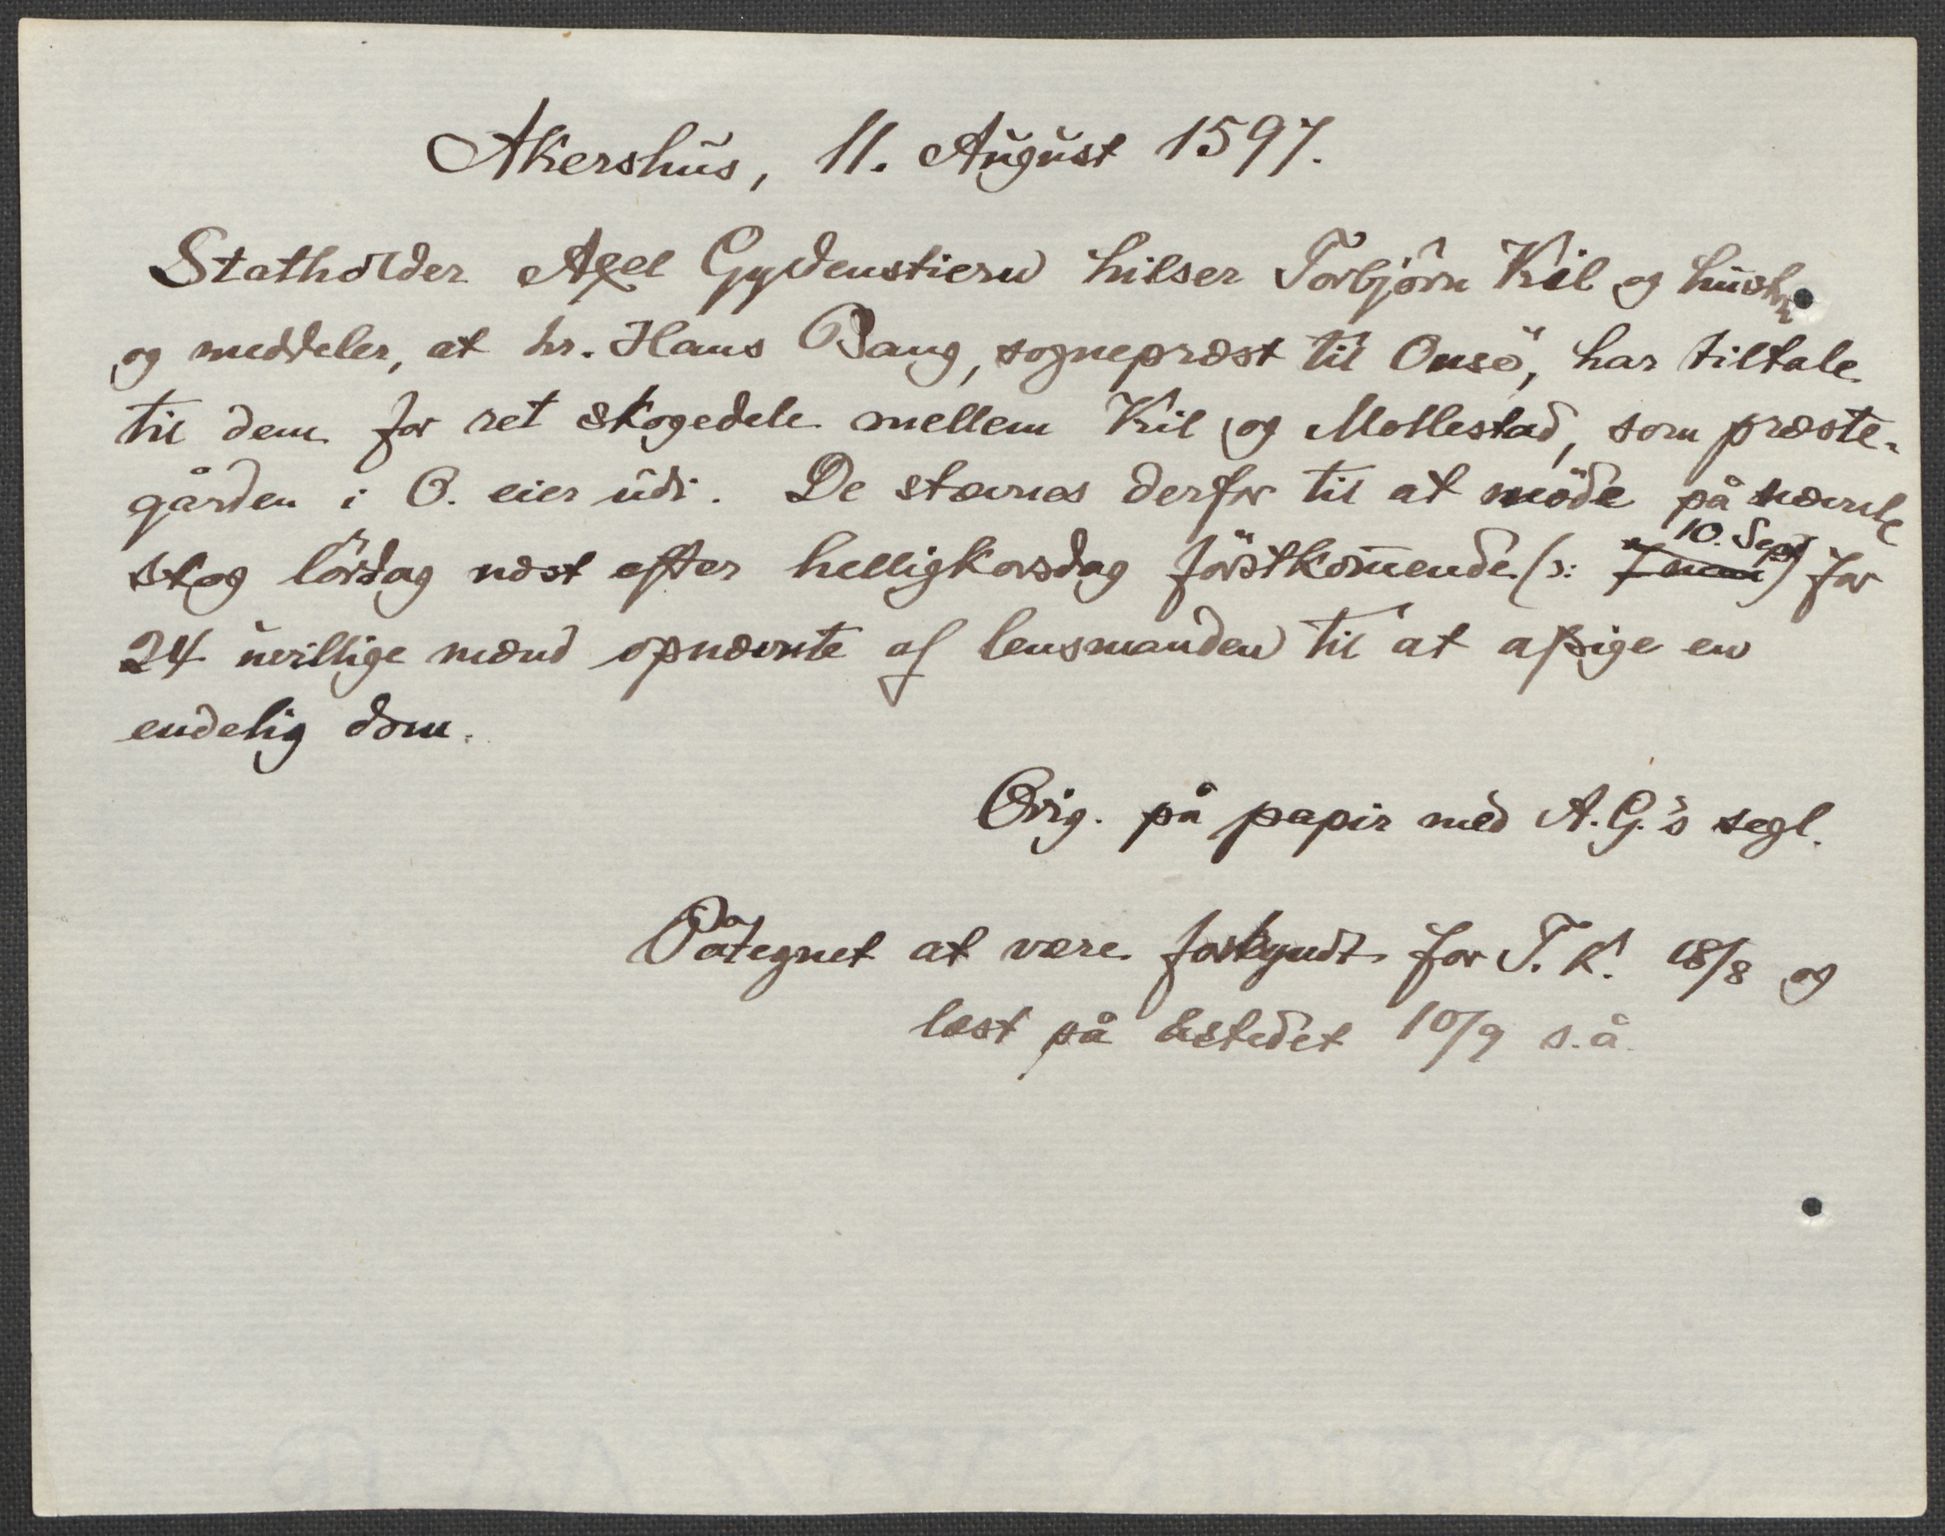 Akershus, 11. August 1597.
Statholder Axel Gyldenstiern hilser Torbjörn Kil og hustru
og meddeler, at hr. Hans Bang, sognepræst til Onsö, har tiltale
til dem for ret skogedele mellem Kil og Mollestad, som præste-
gården i O. eier udi. De stævnes derfor til at möde på nævnte
skog lördag næst efter helligkorsdag förstkom̄ende (ɔ: 10. Sept) for
24 uvillige mænd opnævnte af lensmanden til at afsige en
endelig dom.
Orig. på papir med A. G.'s segl.
Påtegnet at være forkyndt for T. K. 18/8 og
læst på åstedet 10/9 s. å.